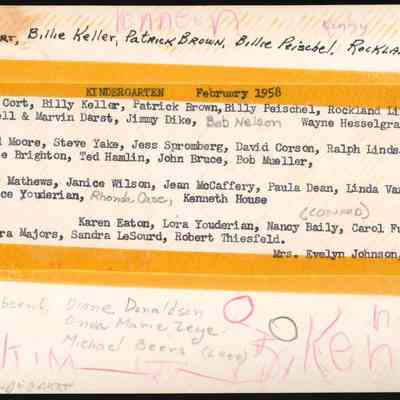 Kenneth
Kenny
RT, Billie Keller, PATRICK BROWN, Billie Peischel, ROCKLA
KINDERGARTEN February 1958
Cort, Billy Keller, Patrick Brown, Billy Peischel, Rockland Li
ell & Marvin Darst, Jimmy Dike, Bob Nelson Wayne Hesselgra
l Moore, Steve Yake, Jess Spromberg, David Corson, Ralph Linds
e Brighton, Ted Hamlin, John Bruce, Bob Mueller,
Mathews, Janice Wilson, Jean McCaffery, Paula Dean, Linda Va
ce Youderian, Rhonda Case, Kenneth House
(CONARD)
Karen Eaton, Lora Youderian, Nancy Baily, Carol Fu
ra Majors, Sandra LeSourd, Robert Thiesfeld.
Mrs. Evelyn Johnson,
bsent, Diane Donaldson
Onda Marie Zeye
Michael Beers
KIM
Ken